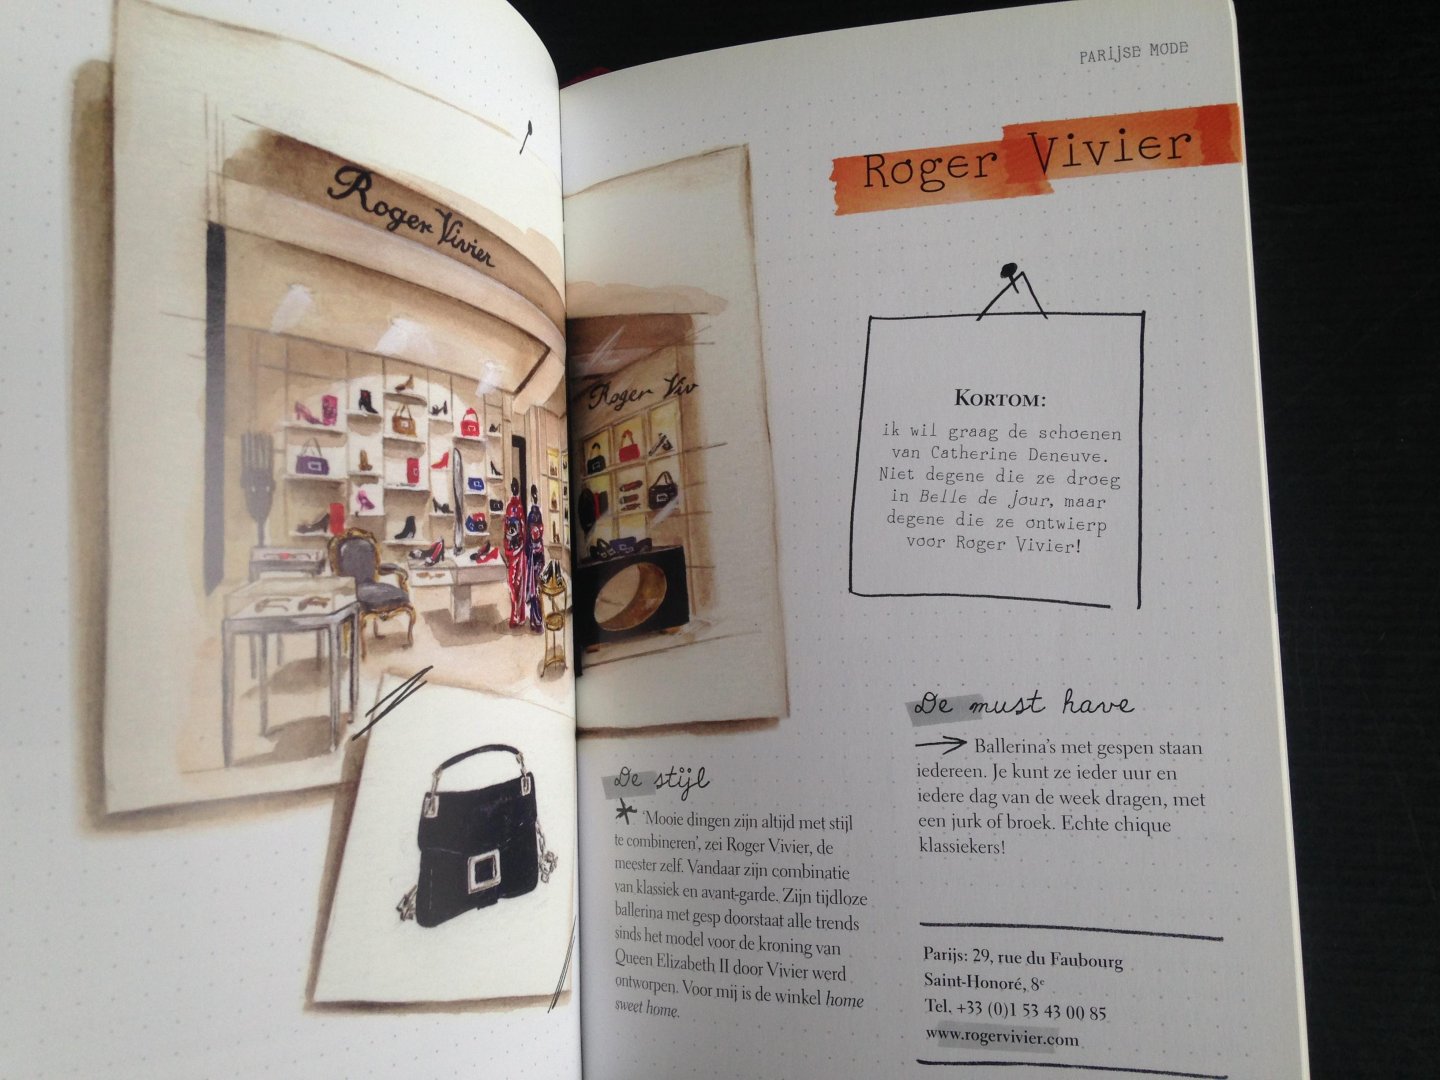 Roger Vivier
Roger Viv
PARIJSE MODE
Roger Vivier
KORTOM:
ik wil graag de schoenen
van Catherine Deneuve.
Niet degene die ze droeg
in Belle de jour, maar
degene die ze ontwierp
voor Roger Vivier!
De stijl
* 'Mooie dingen zijn altijd met stijl
te combineren', zei Roger Vivier, de
meester zelf. Vandaar zijn combinatie
van klassiek en avant-garde. Zijn tijdloze
ballerina met gesp doorstaat alle trends
sinds het model voor de kroning van
Queen Elizabeth II door Vivier werd
ontworpen. Voor mij is de winkel home
sweet home.
De must have
→ Ballerina's met gespen staan
iedereen. Je kunt ze ieder uur en
iedere dag van de week dragen, met
een jurk of broek. Echte chique
klassiekers!
Parijs: 29, rue du Faubourg
Saint-Honoré, 8e
Tel. +33 (0)1 53 43 00 85
www.rogervivier.com